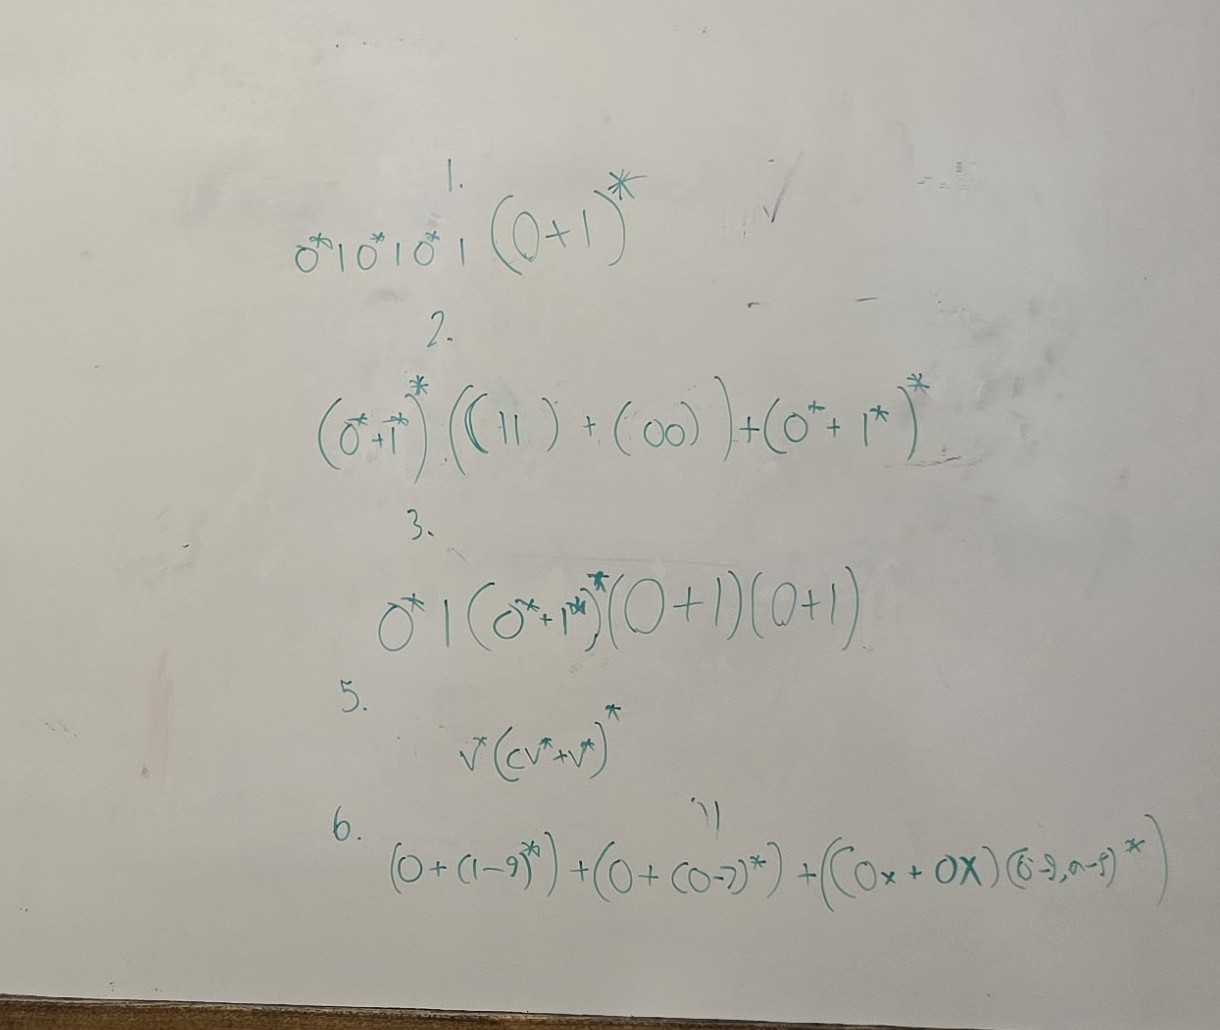 1.
0*10*10*1(0+1)*
2.
(0*+1*)*.((11)+(00))+(0*+1*)*
3.
0*1(0*+1*)*(0+1)(0+1)
5.
V*(CV*+V*)*
6.
(0+(1-9)*)+(0+(0-7)*)+((0x+0X)(0-9,a-f)*)